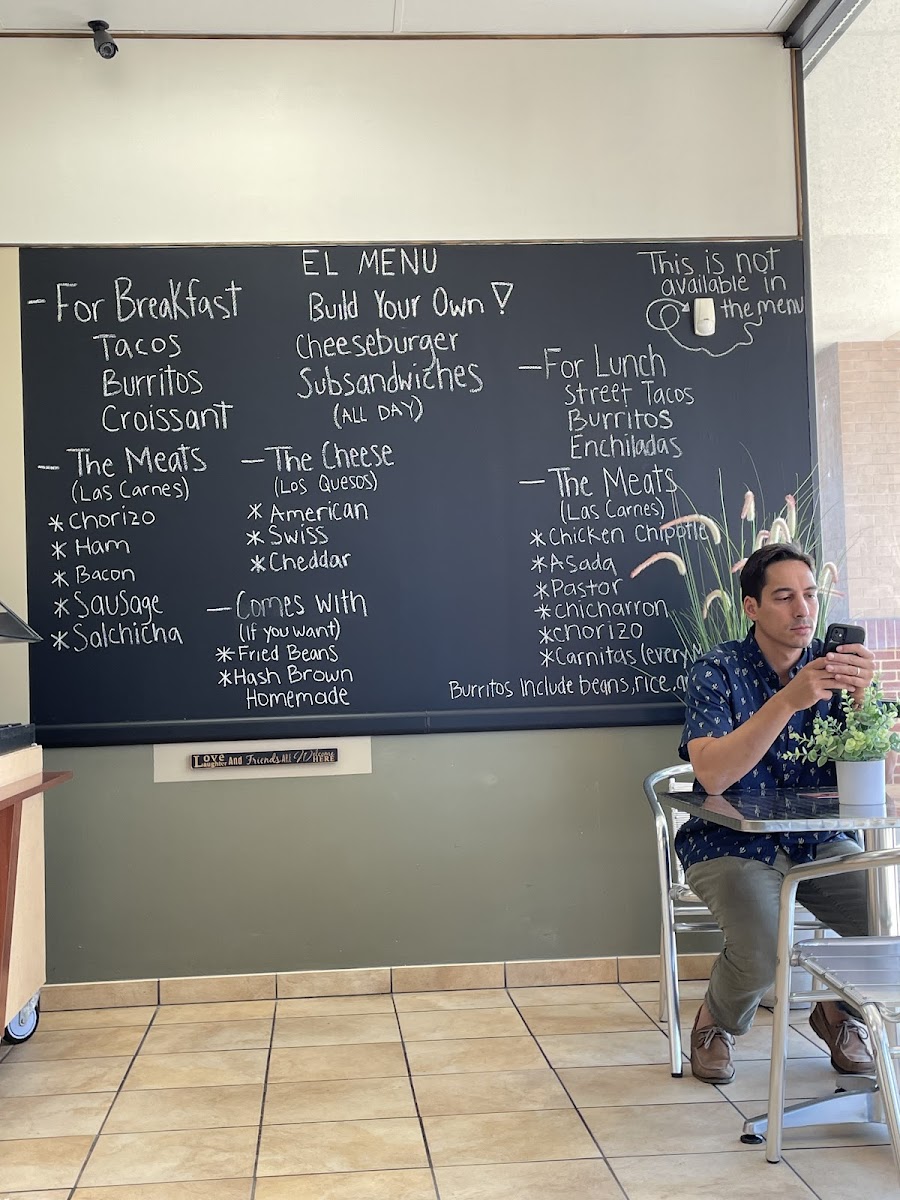 EL MENU
Build Your Own!
Cheeseburger
Subsandwiches
(ALL DAY)
- For Breakfast
Tacos
Burritos
Croissant
- The Meats
(Las Carnes)
* Chorizo
* Ham
* Bacon
* Sausage
* Salchicha
- The Cheese
(Los Quesos)
* American
* Swiss
* Cheddar
- Comes with
(If you want)
* Fried Beans
* Hash Brown
Homemade
This is not
available in
the menu
- For Lunch
Street Tacos
Burritos
Enchiladas
- The Meats
(Las Carnes)
* Chicken Chipotle
* Asada
* Pastor
* chicharron
* chorizo
* Carnitas
Burritos Include beans, rice,
Love Laughter And Friends ALL Welcome HERE